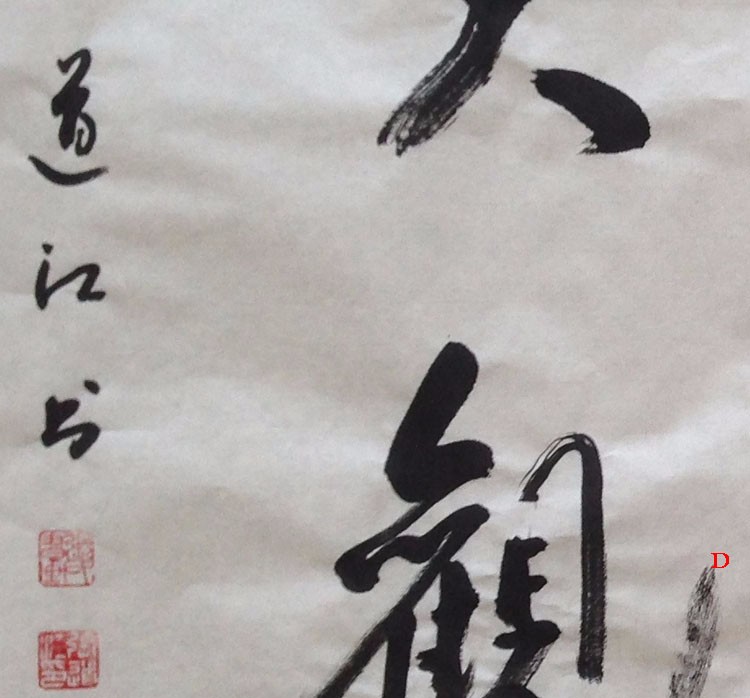 大觀
道江书
D